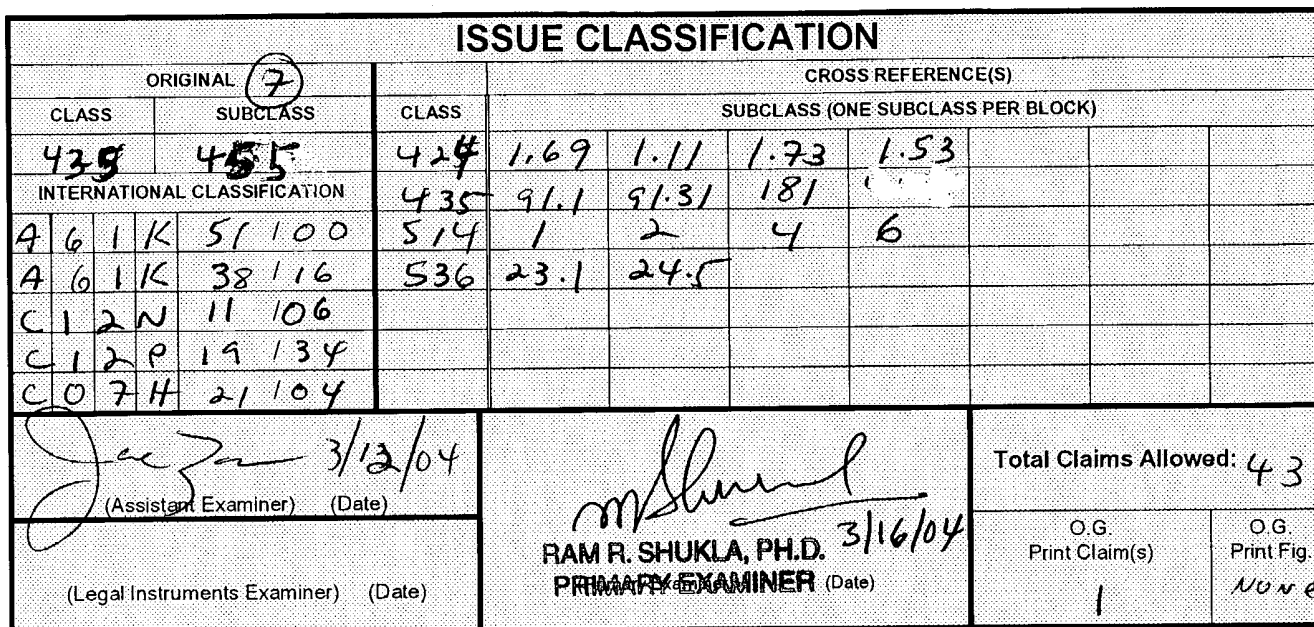 ISSUE CLASSIFICATION
ORIGINAL 7 CROSS REFERENCE(S)
CLASS SUBCLASS CLASS SUBCLASS (ONE SUBCLASS PER BLOCK)
435 455 424 1.69 1.11 1.73 1.53
INTERNATIONAL CLASSIFICATION 435 91.1 91.31 181
A 6 1 K 51 / 00 514 1 2 4 6
A 6 1 K 38 / 16 536 23.1 24.5
C 1 2 N 11 / 06
C 1 2 P 19 / 34
C 0 7 H 21 / 04
3/12/04
(Assistant Examiner) (Date)
(Legal Instruments Examiner) (Date)
3/16/04
RAM R. SHUKLA, PH.D.
PRIMARY EXAMINER (Date)
Total Claims Allowed: 43
O.G. Print Claim(s)
1
O.G. Print Fig.
NONE